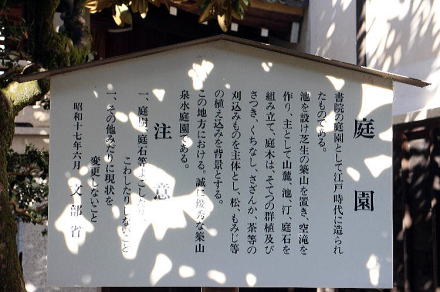 庭園
書院の庭園として江戸時代に造られ
たものである。
池を設け芝生の築山を置き、空滝を
作り、主として山麓、池、汀、庭石を
組み立て、庭木は、そてつの群植及び
さつき、くちなし、さざんか、茶等の
刈込みものを主体とし、松、もみじ等
の植え込みを背景とする。
この地方における、誠に優秀な築山
泉水庭園である。
注意
一、庭園、庭石等よごしたり、
こわしたりしないこと
一、その他みだりに現状を
変更しないこと
昭和十七年六月 文部省